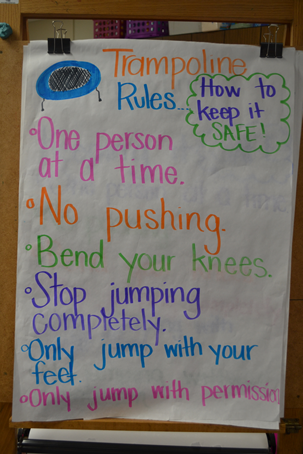 Trampoline
Rules...
How to
keep it
SAFE!
One person
at a time.
No pushing.
Bend your knees.
Stop jumping
completely.
Only jump with your
feet.
Only jump with permission